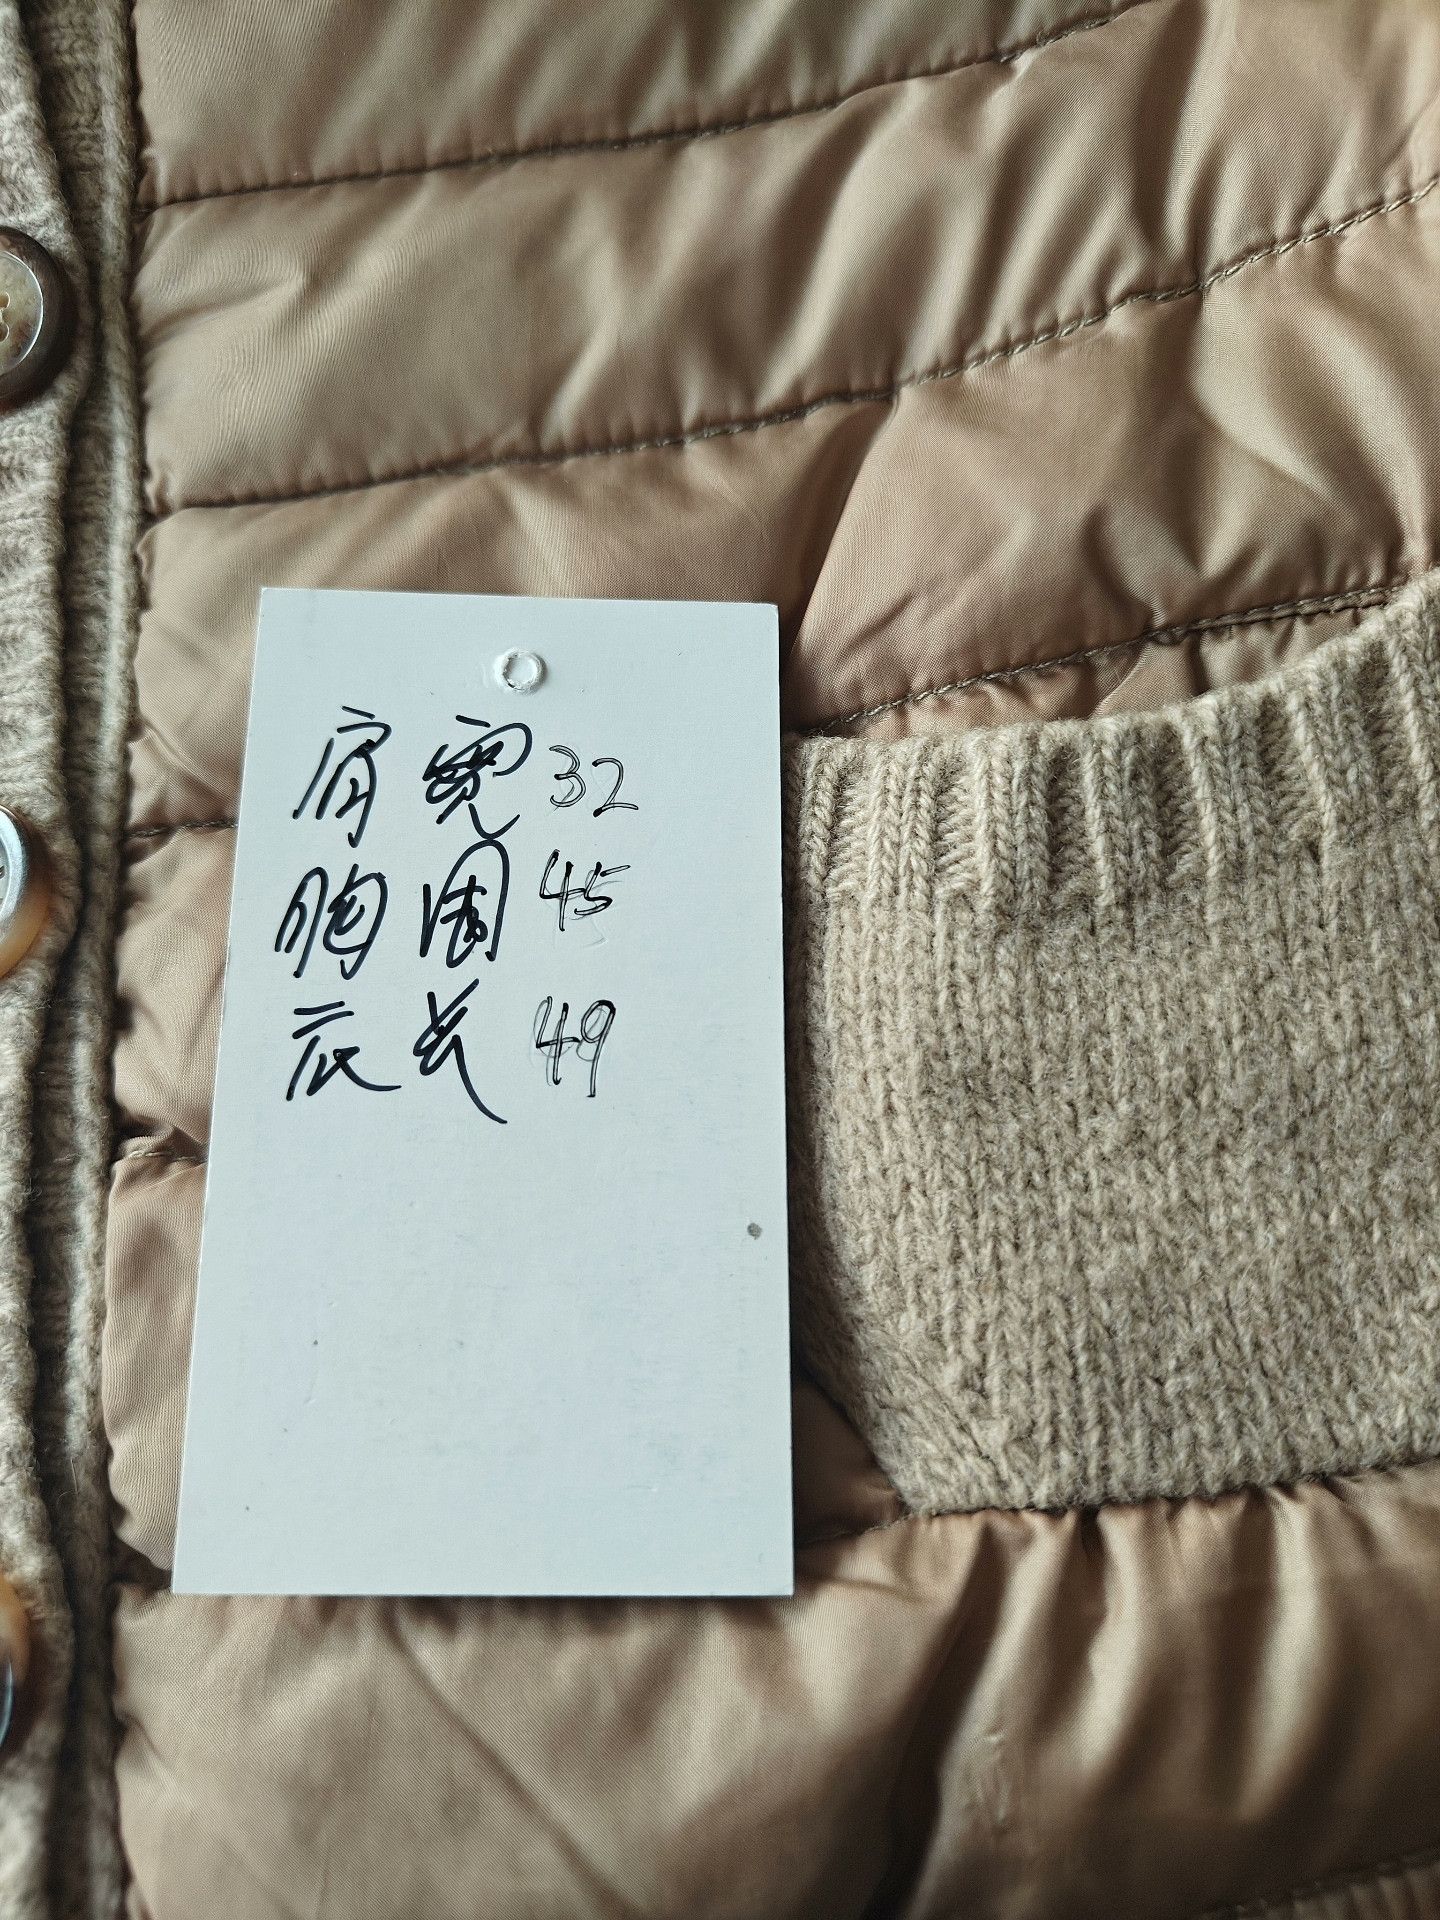 肩宽32
胸围45
衣长49